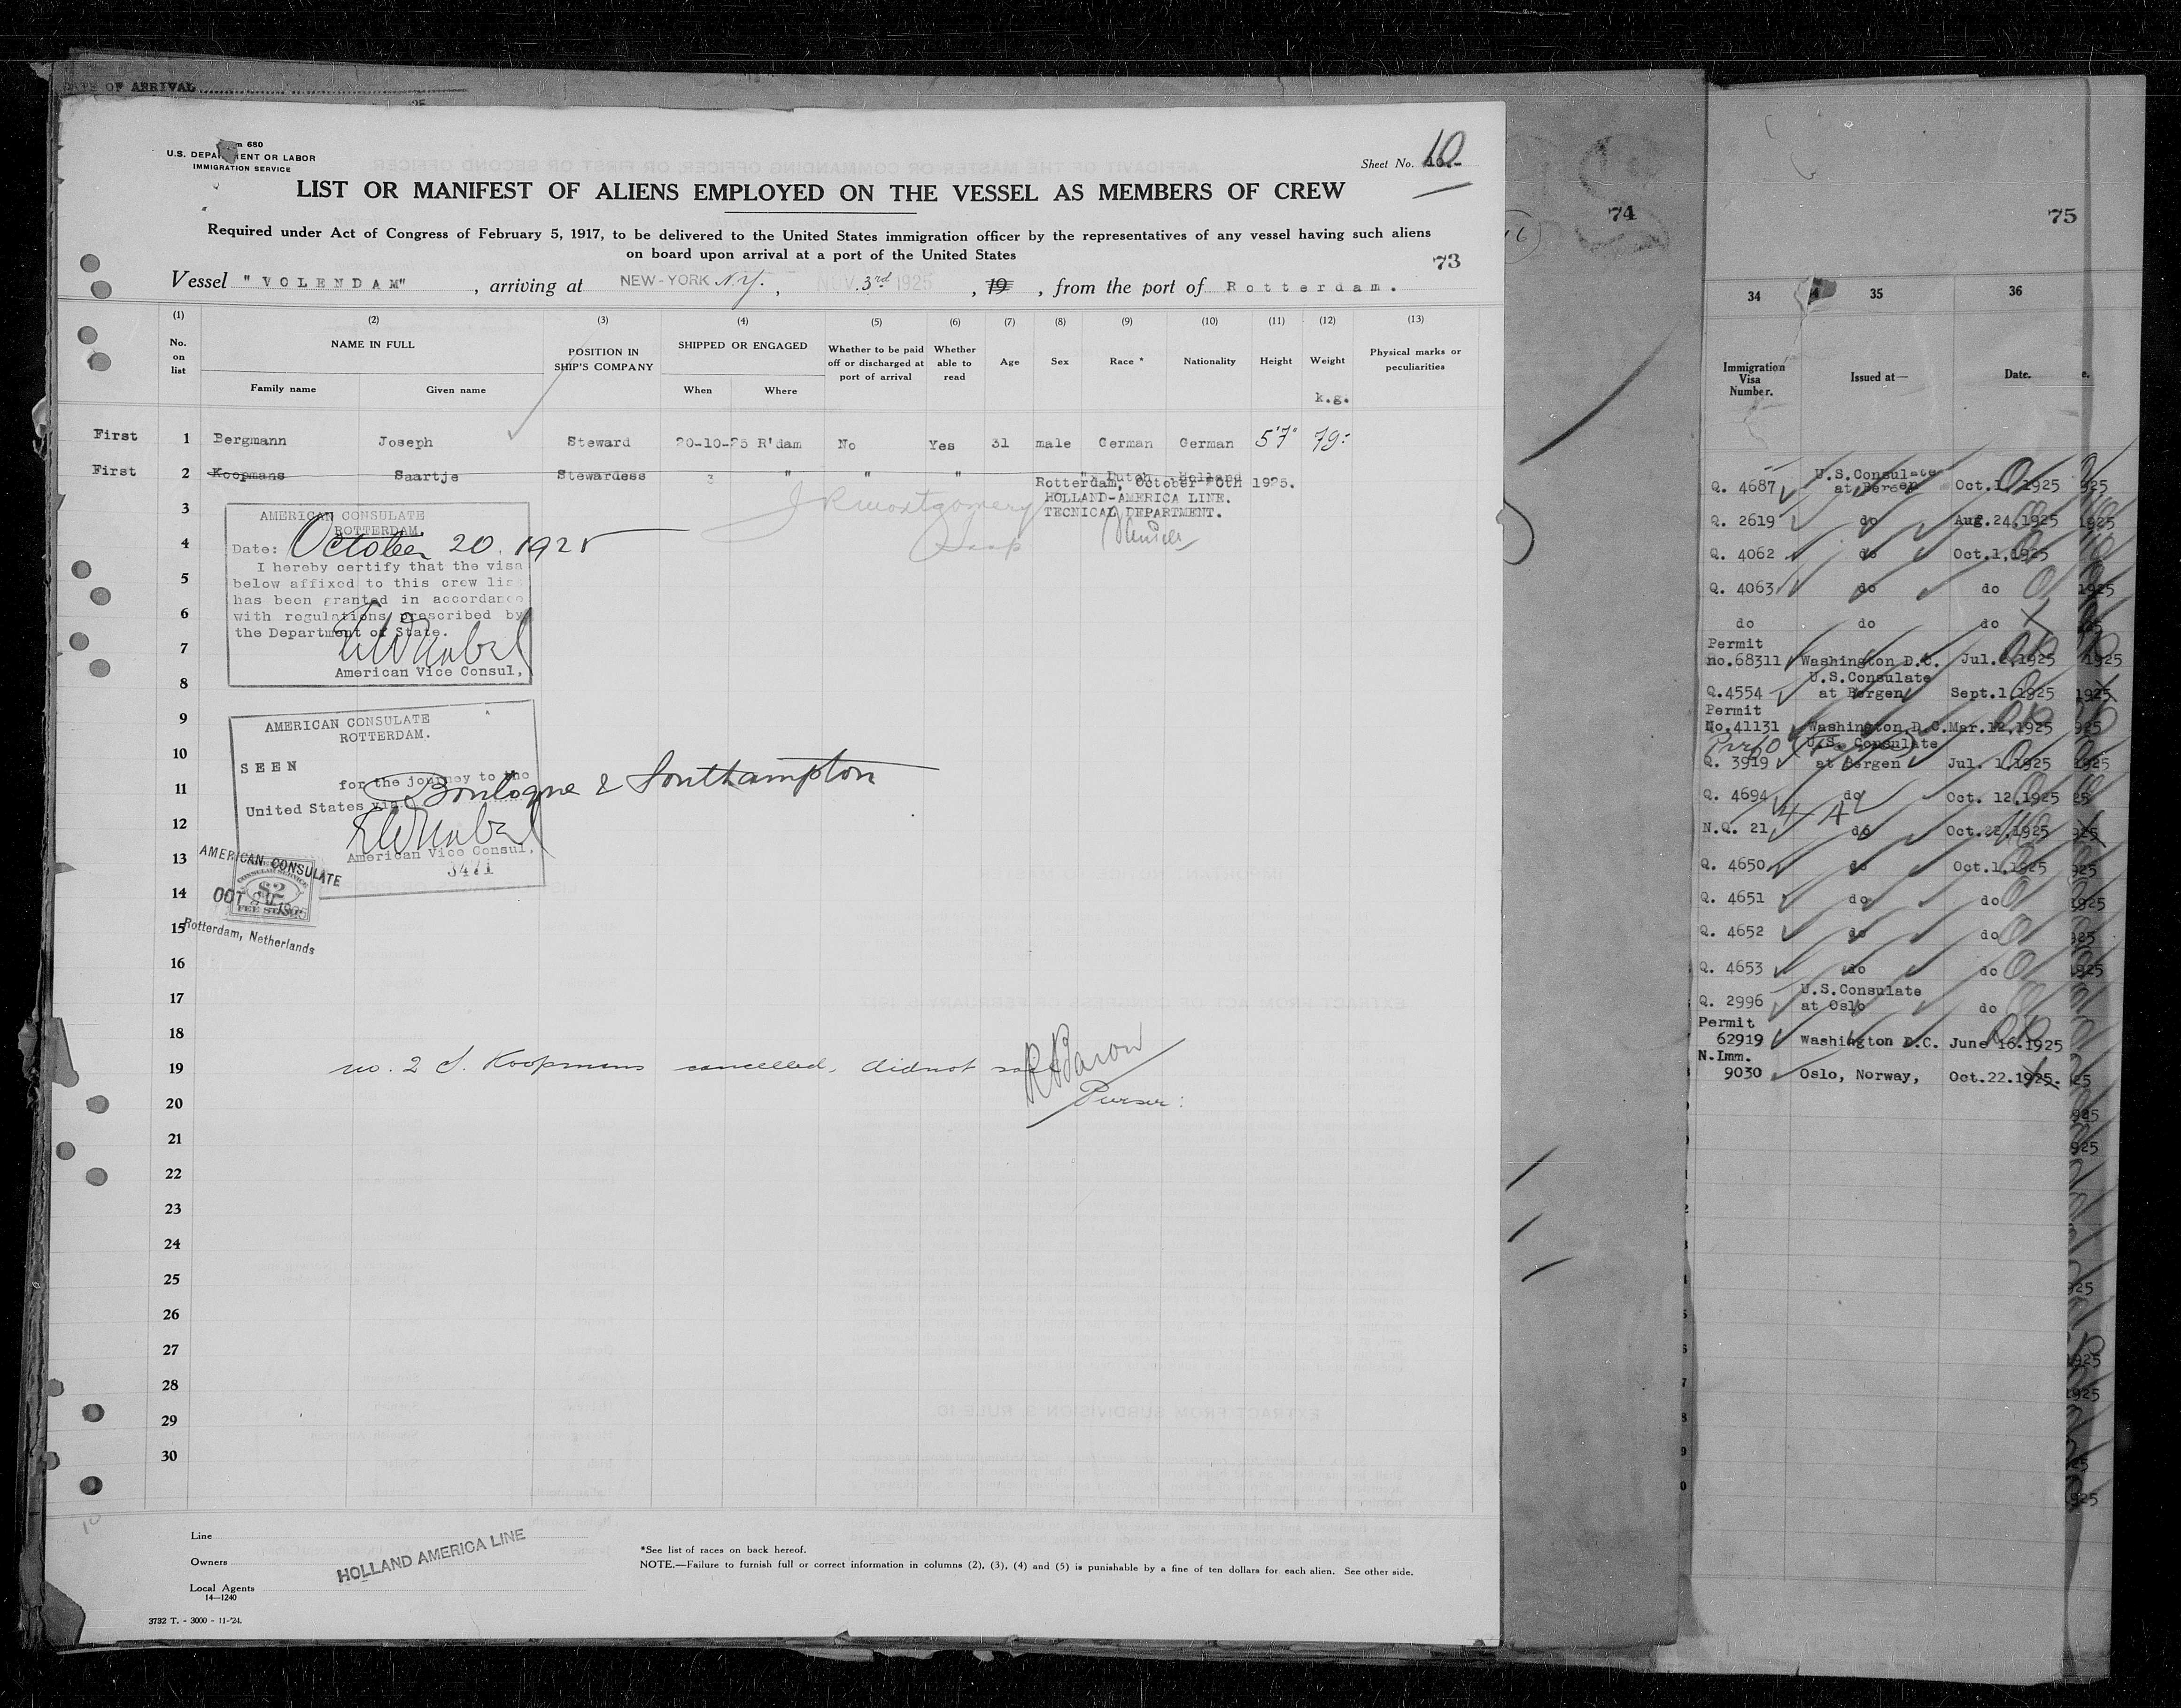 DATE OF ARRIVAL
680
U.S. DEPARTMENT OR LABOR
IMMIGRATION SERVICE
Sheet No. 10
LIST OR MANIFEST OF ALIENS EMPLOYED ON THE VESSEL AS MEMBERS OF CREW
Required under Act of Congress of February 5, 1917, to be delivered to the United States immigration officer by the representatives of any vessel having such aliens
on board upon arrival at a port of the United States
73
Vessel "VOLENDAM", arriving at NEW-YORK N.Y., NOV. 3rd 1925, 19, from the port of Rotterdam.
(1) (2) (3) (4) (5) (6) (7) (8) (9) (10) (11) (12) (13)
No. on list
NAME IN FULL
Family name Given name
POSITION IN SHIP'S COMPANY
SHIPPED OR ENGAGED
When Where
Whether to be paid off or discharged at port of arrival
Whether able to read
Age
Sex
Race *
Nationality
Height
Weight
k.g.
Physical marks or peculiarities
First 1 Bergmann Joseph Steward 20-10-25 R'dam No Yes 31 male German German 5'7" 79:
First 2 Koopmans Saartje Stewardess " " " " Dutch Holland
Rotterdam, October 20th 1925.
HOLLAND-AMERICA LINE.
TECNICAL DEPARTMENT.
J R Montgomery
3
4
5
6
7
8
9
10
11
12
13
14
15
16
17
18
19
20
21
22
23
24
25
26
27
28
29
30
AMERICAN CONSULATE
ROTTERDAM.
Date: October 20. 1925
I hereby certify that the visa
below affixed to this crew list
has been granted in accordance
with regulations prescribed by
the Department of State.
American Vice Consul,
AMERICAN CONSULATE
ROTTERDAM.
SEEN
for the journey to the
United States via Boulogne & Southampton
American Vice Consul,
3471
AMERICAN CONSULATE
CONSULAR SERVICE
$2
FEE STAMP
OCT 20 1925
Rotterdam, Netherlands
no. 2 S. Koopmans cancelled, did not sail
Purser:
Line
Owners
Local Agents
14—1240
HOLLAND AMERICA LINE
*See list of races on back hereof.
NOTE.—Failure to furnish full or correct information in columns (2), (3), (4) and (5) is punishable by a fine of ten dollars for each alien. See other side.
3732 T. - 3000 - 11-'24.
74
75
34 35 36
Immigration Visa Number.
Issued at—
Date.
Q. 4687 U.S.Consulate at Bergen Oct.1, 1925
Q. 2619 do Aug.24,1925
Q. 4062 do Oct.1,1925
Q. 4063 do do
do do do
Permit
no.68311 Washington D.C. Jul.2,1925
Q.4554 U.S.Consulate at Bergen Sept.1,1925
Permit
No.41131 Washington D.C. Mar.12,1925
Q. 3919 U.S. Consulate at Bergen Jul. 1,1925
Q. 4694 do Oct. 12,1925
N.Q. 21 do Oct.22,1925
Q. 4650 do Oct.1,1925
Q. 4651 do do
Q. 4652 do do
Q. 4653 do do
Q. 2996 U.S.Consulate at Oslo do
Permit
62919 Washington D.C. June 16.1925
N.Imm.
9030 Oslo, Norway, Oct.22.1925.